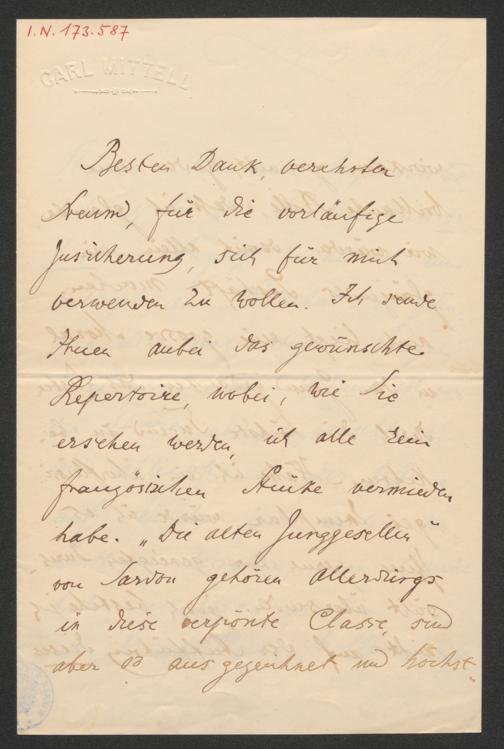 I.N. 173.587
CARL MITTELL
Besten Dank, verehrter
Freund, für die vorläufige
Zusicherung, sich für mich
verwenden zu wollen. Ich sende
Ihnen anbei das gewünschte
Repertoire, wobei, wie Sie
ersehen werden, ich alle rein
französischen Stücke vermieden
habe. „Die alten Junggesellen"
von Sardou gehören allerdings
in diese verpönte Classe, sind
aber so ausgezeichnet und höchst